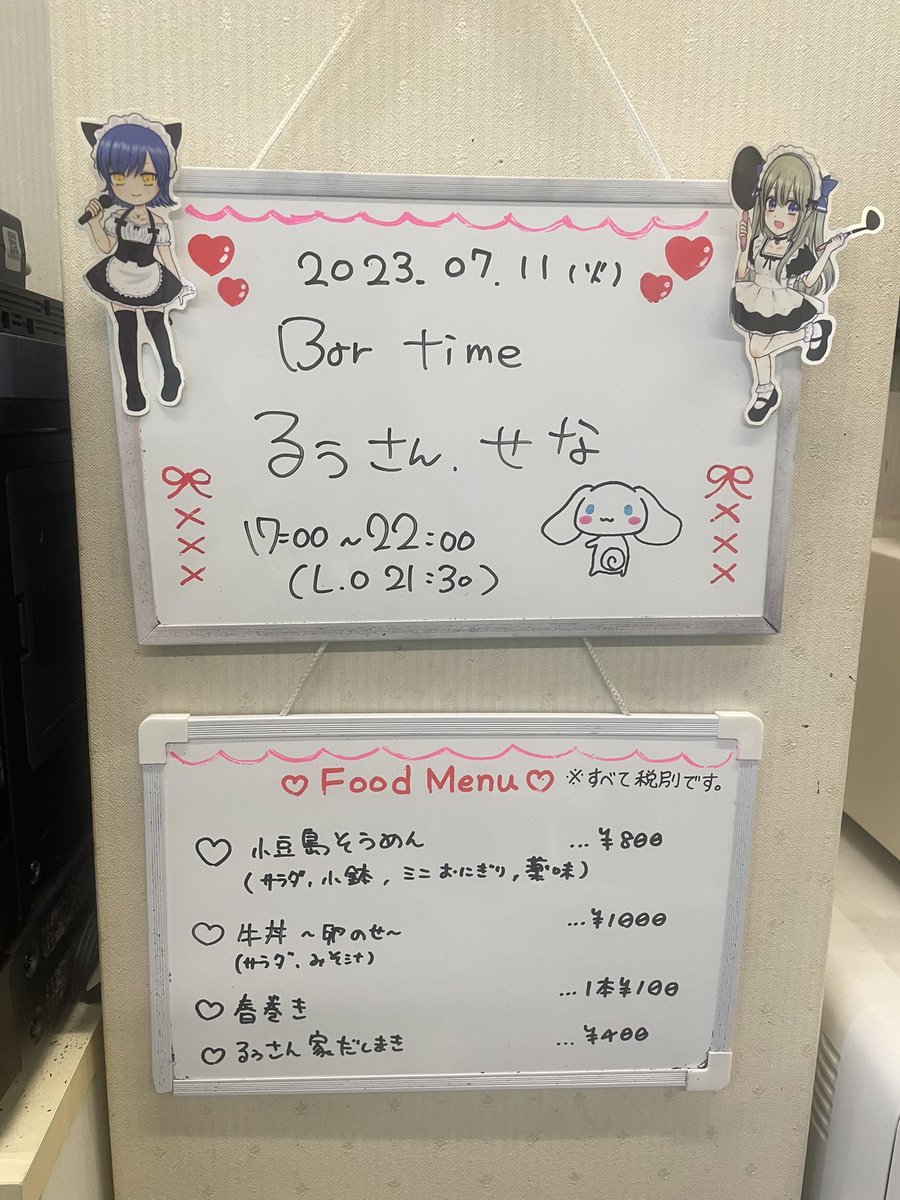 2023.07.11(火)
Bar time
るぅさん.せな
17:00~22:00
(L.O 21:30)
♡Food Menu♡ ※すべて税別です。
♡ 小豆島そうめん ...¥800
(サラダ,小鉢,ミニおにぎり,薬味)
♡ 牛丼~卵のせ~ ...¥1000
(サラダ、みそ汁)
♡ 春巻き ...1本¥100
♡ るぅさん家だしまき ...¥400